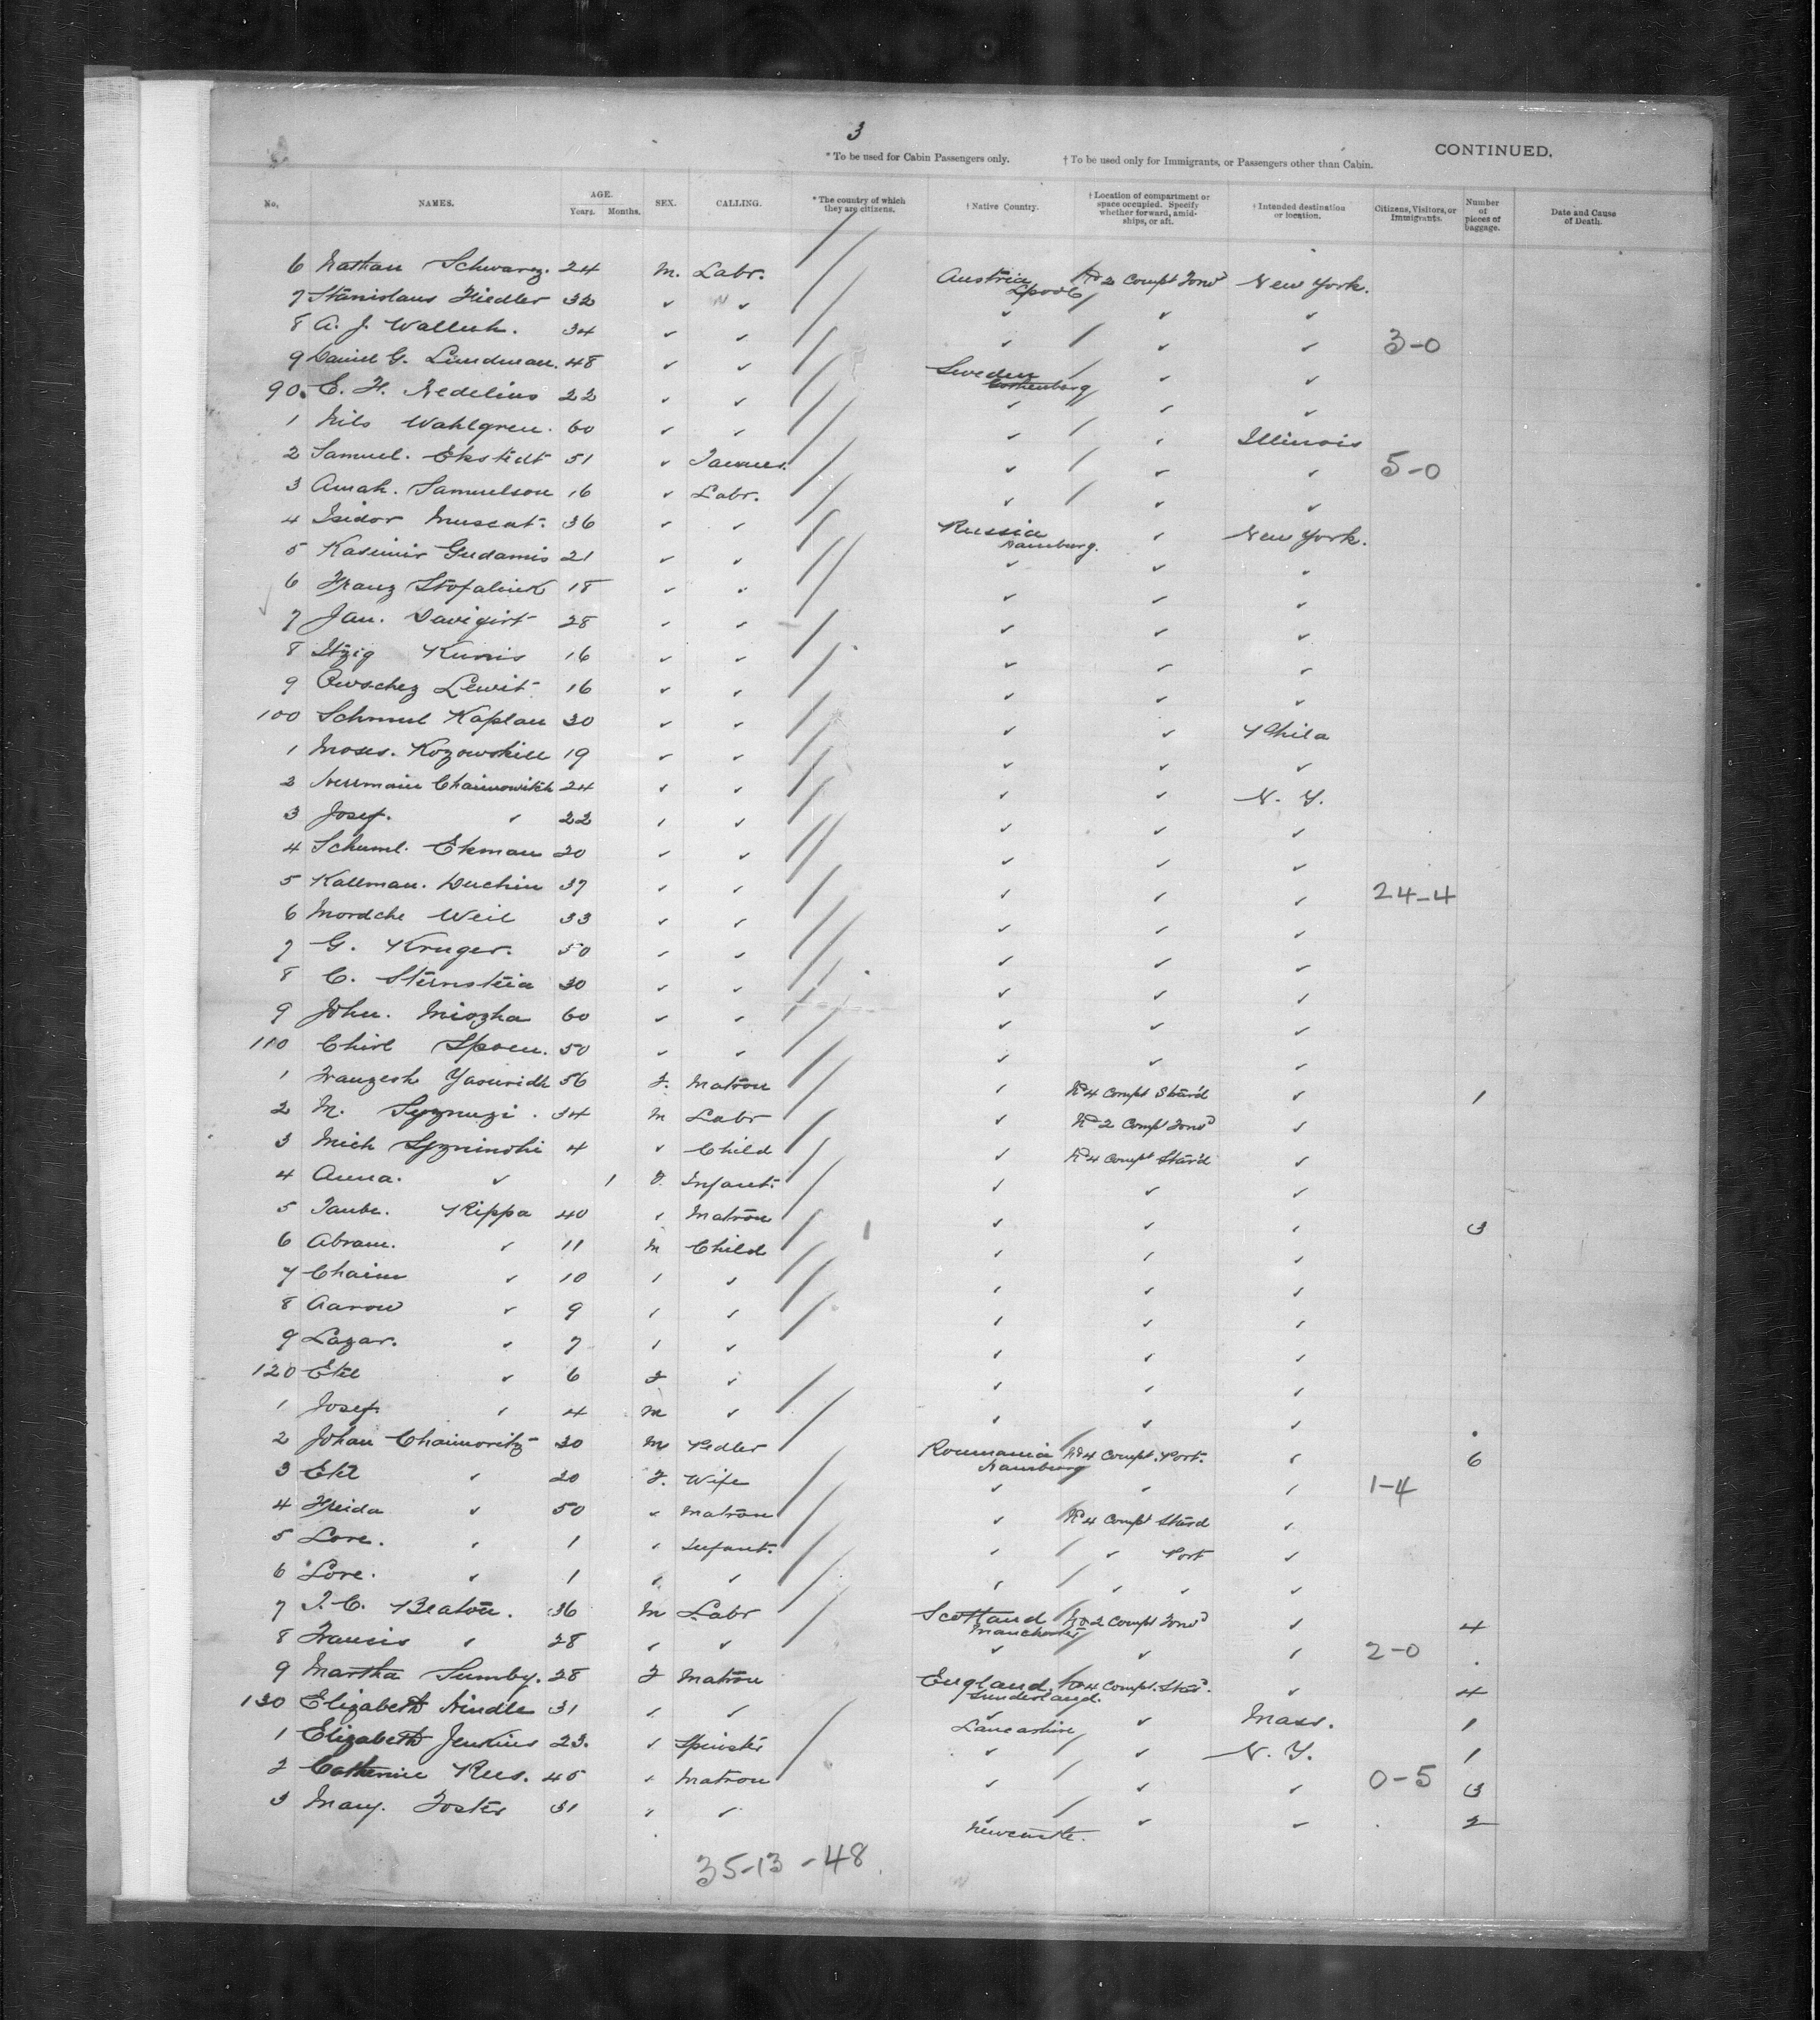 3
* To be used for Cabin Passengers only. † To be used only for Immigrants, or Passengers other than Cabin. CONTINUED.
No. NAMES. AGE. Years. Months. SEX. CALLING. * The country of which they are citizens. † Native Country. † Location of compartment or space occupied. Specify whether forward, amidships, or aft. † Intended destination or location. Citizens, Visitors, or Immigrants. Number of pieces of baggage. Date and Cause of Death.
6 Nathan Schwarz. 24 M. Labr. Austria Lpool No 2 Compt Forwd New York.
7 Stanislaus Fiedler 32 ✓ ✓ ✓ ✓ ✓
8 A. J. Walluh. 34 ✓ ✓ ✓ ✓ ✓ 3-0
9 Daniel G. Lundman. 48 ✓ ✓ Sweden Gothenburg ✓ ✓
90. E. H. Nedelius 22 ✓ ✓ ✓ ✓ ✓
1 Nils Wahlgren. 60 ✓ ✓ ✓ ✓ Illinois
2 Samuel. Ekstedt 51 ✓ ✓ ✓ ✓ 5-0
3 Amah. Samuelson 16 ✓ Labr. ✓ ✓ ✓
4 Isidor Muscat. 36 ✓ ✓ Russia Hamburg. ✓ New York.
5 Kasimir Gudamis 21 ✓ ✓ ✓ ✓ ✓
6 Franz Stofalink 18 ✓ ✓ ✓ ✓ ✓
7 Jan. Davigirt 28 ✓ ✓ ✓ ✓ ✓
8 Itzig Kunis 16 ✓ ✓ ✓ ✓ ✓
9 Owschez Lewit 16 ✓ ✓ ✓ ✓ ✓
100 Schmul Kaplan 30 ✓ ✓ ✓ ✓ Phila
1 Moses. Kozowskill 19 ✓ ✓ ✓ ✓ ✓
2 Herrmain Chaimowitch 24 ✓ ✓ ✓ ✓ N. Y.
3 Josef. ✓ 22 ✓ ✓ ✓ ✓ ✓
4 Schuml. Ekman 20 ✓ ✓ ✓ ✓ ✓
5 Kallman. Duchin 37 ✓ ✓ ✓ ✓ ✓ 24-4
6 Mordche Weil 33 ✓ ✓ ✓ ✓ ✓
7 G. Kruger. 50 ✓ ✓ ✓ ✓ ✓
8 C. Sternsteia 30 ✓ ✓ ✓ ✓ ✓
9 John. Miozha 60 ✓ ✓ ✓ ✓ ✓
110 Chirl Spoen. 50 ✓ ✓ ✓ ✓ ✓
1 Franzesk 56 F. Matron ✓ No 4 Compt Starbd ✓ 1
2 M. Syznuzi. 34 M Labr ✓ No 2 Compt Forwd ✓
3 Mich Syzninski 4 ✓ Child ✓ No 4 Compt Starbd ✓
4 Anna. ✓ 1 F. Infant. ✓ ✓ ✓
5 Taube. Rippa 40 ✓ Matron ✓ ✓ ✓ 3
6 Abram. ✓ 11 M Child ✓ ✓ ✓
7 Chaim ✓ 10 ✓ ✓ ✓ ✓ ✓
8 Aaron ✓ 9 ✓ ✓ ✓ ✓ ✓
9 Lazar. ✓ 7 ✓ ✓ ✓ ✓ ✓
120 Etel ✓ 6 F ✓ ✓ ✓ ✓
1 Josef. ✓ 4 M ✓ ✓ ✓ ✓
2 Johan Chaimoritz 30 M Pedler Roumania Hamburg No 4 Compt. Port. ✓ 6
3 Etel ✓ 20 F. Wife ✓ ✓ ✓ 1-4
4 Freida ✓ 50 ✓ Matron ✓ No 4 Compt Starbd ✓
5 Lore. ✓ 1 ✓ Infant. ✓ ✓ Port ✓
6 Lore. ✓ 1 ✓ ✓ ✓ ✓ ✓ ✓
7 J. C. Beaton. 36 M Labr Scotland Manchester No 2 Compt Forwd ✓ 4
8 Francis ✓ 28 ✓ ✓ ✓ ✓ ✓ 2-0
9 Martha Sumby. 28 F Matron England Sunderland. No 4 Compt. Starbd. ✓ 4
130 Elizabeth Hindle 31 ✓ ✓ ✓ Lancashire ✓ Mass. 1
1 Elizabeth Jenkins 23. ✓ Spinster ✓ ✓ N. Y. 1
2 Catherine Rees. 45 ✓ Matron ✓ ✓ ✓ 0-5 3
3 Mary. Foster 31 ✓ ✓ ✓ Newcastle. ✓ ✓ 2
35-13-48